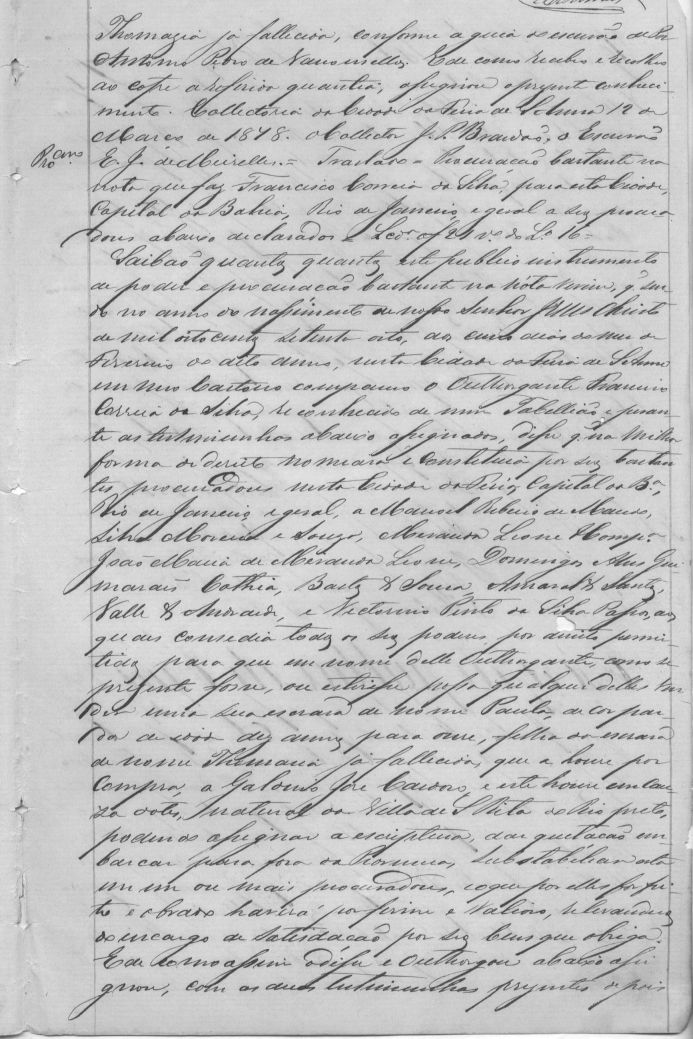 Thomazia já fallecida, conforme a guia do escrivão
Antonio Pedro de Vasconcellos. E de como recebeo e recolheo
ao cofre a referida quantia, assignou o presente conheci-
mento. Collectoria da Cidade da Feira de S. Anna 12 de
Março de 1878. O Collector J. P. Brandão, o Escrivão
E. J. de Meirelles. = Traslado = Procuração bastante na
Procam
nota que faz Francisco Correia da Silva, para esta Cidade,
Capital da Bahia, Rio de Janeiro, e geral a seus procura
dores abaixo declarados = L.o 16 =
Saibaõ quantos este publico instrumento
de poder e procuração bastante na nota virem, q sen
do no anno do nassimento de nosso Senhor JESUS Christo
de mil oito centos setenta oito, aos cinco dias do mez de
Fevereiro do dito anno, nesta Cidade da Feira de S. Anna
em meu Cartorio compareceo o Outhorgante Francisco
Correia da Silva, reconhecido de mim Tabellião e peran-
te as testimunhas abaixo assignadas, disse q na milhor
forma de dereito nomeava e constituia por seus bastan
tes procuradores nesta Cidade da Feira, Capital da Ba,
Rio de Janeiro, e geral, a Manoel Ribeiro de Macedo,
Silva Moreira e Souza, Miranda Leone & Comp.a
João Maria de Miranda Leone, Domingos Alves Gui
marães Cothia, Bastos & Souza, Amaral & Santos,
Valle & Andrade, e Victorino Pinto da Silva Passos, aos
quais consedia todos os seus poderes, por direito permi-
tidos para que em nome delle Outhorgante, como se
prezente fosse, ou estivesse possa qualquer delles ven
der uma sua escrava de nome Paula, de cor par-
da de idade dez annos para onze, filha da escrava
de nome Thomazia já fallecida, que a houve por
compra, a Galdino José Cardoso, e este houve em cau
za dotes, natural da Villa de S. Rita do Rio preto,
podendo assignar a escriptura, dar quitação em
barcar para fora da Provincia, substabelecer esta
em um ou mais procuradores, o que por elles for fei
to e obrado haverá por firme e valioso, relevandoos
do encargo de satisdação por seus bens que obriga.
E de como assim o disse e outhorgou abaixo assi
gnou, com as duas testimunhas prezentes depois